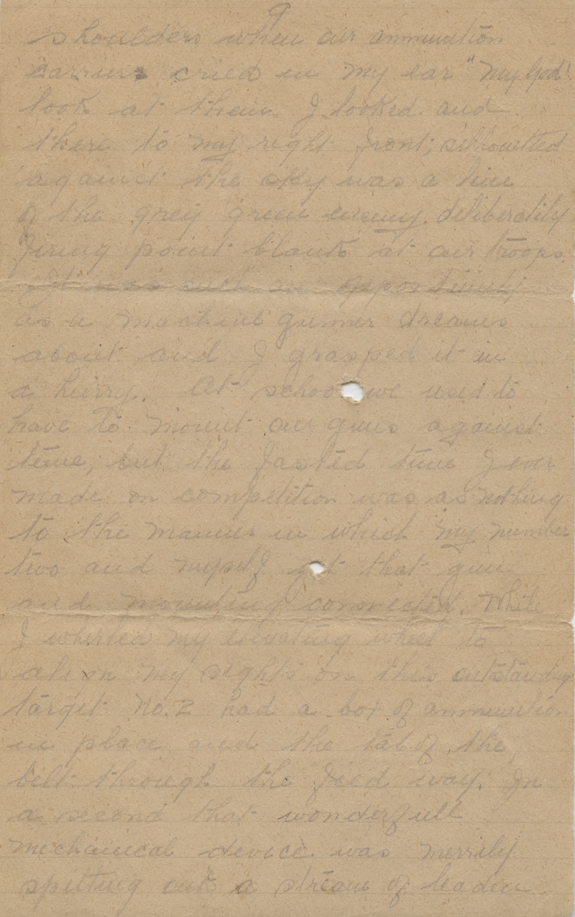 9
shoulders when our ammunition
carriers cried in my ear "My God!
look at them. I looked and
there to my right front, silhouetted
against the sky was a line
of the grey green enemy deliberatily
firing point blank at our troops
It was such an oppertunity
as a machine gunner dreams
about and I grasped it in
a hurry. At school we used to
have to mount our guns against
time, but the fasted time I ever
made on competition was as nothing
to the manner in which my number
two and myself got that gun
and mounting connected. While
I whirled my elevating wheel to
align my sights on this outstanding
target No. 2 had a box of ammunition
in place and the tab of the
belt through the feed way. In
a second that wonderfull
mechanical device was merrily
spitting out a stream of leaden